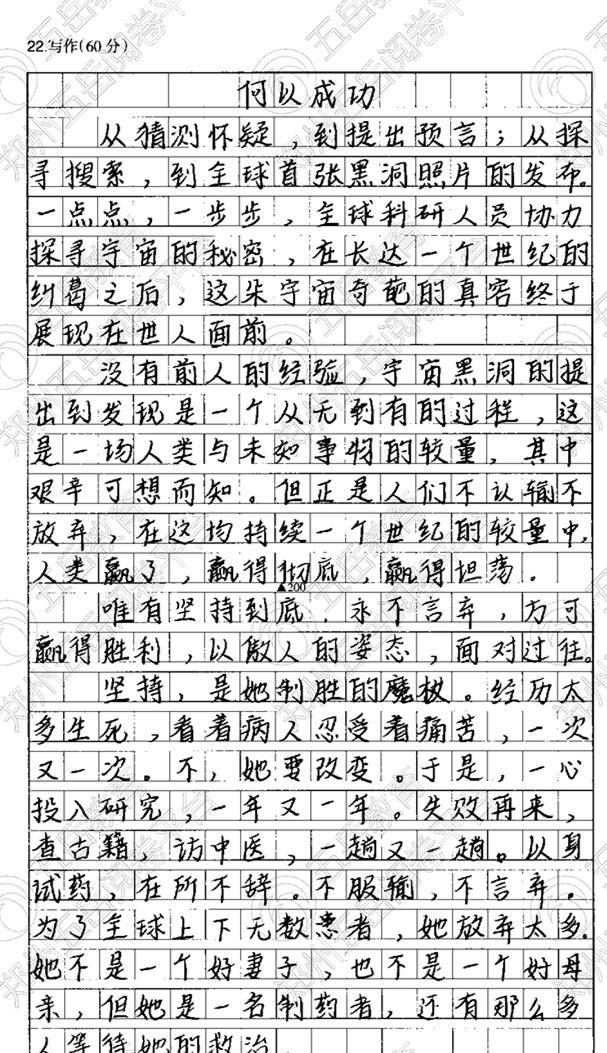 22.写作(60分)
何以成功
从猜测怀疑，到提出预言；从探
寻搜索，到全球首张黑洞照片的发布。
一点点，一步步，全球科研人员协力
探寻宇宙的秘密，在长达一个世纪的
纠葛之后，这朱宇宙奇葩的真容终于
展现在世人面前。
没有前人的经验，宇宙黑洞的提
出到发现是一个从无到有的过程，这
是一场人类与未知事物的较量，其中
艰辛可想而知。但正是人们不认输不
放弃，在这均持续一个世纪的较量中，
人类赢了，赢得彻底，赢得坦荡。
▲200
唯有坚持到底，永不言弃，方可
赢得胜利，以傲人的姿态，面对过往。
坚持，是她制胜的魔杖。经历太
多生死，看着病人忍受着痛苦，一次
又一次。不，她要改变。于是，一心
投入研究，一年又一年。失败再来，
查古籍，访中医，一趟又一趟。以身
试药，在所不辞。不服输，不言弃。
为了全球上下无数患者，她放弃太多。
她不是一个好妻子，也不是一个好母
亲，但她是一名制药者，还有那么多
人等待她的救治
郑州五岳阅卷平台